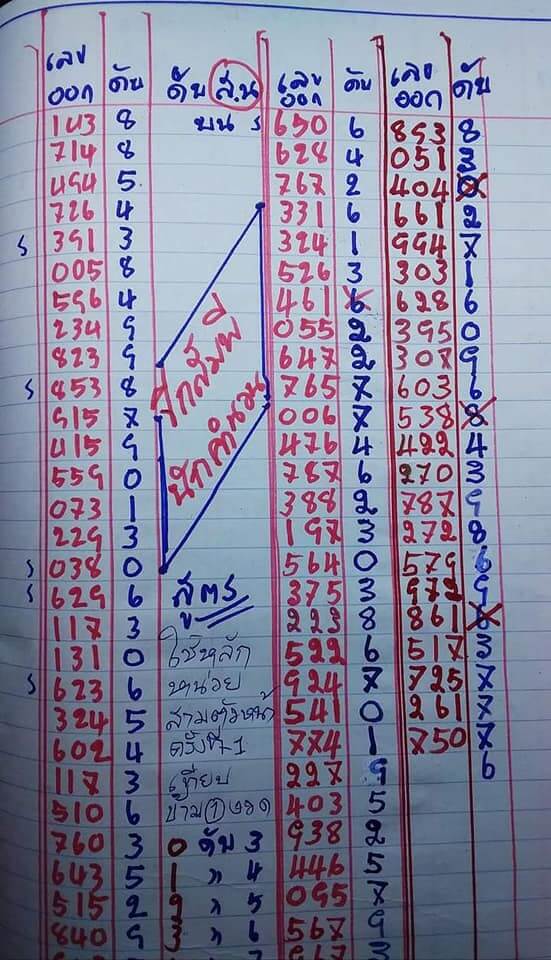 เลข ดับ ดับ ส.น เลข ดับ เลข ดับ
ออก บน ร ออก ออก
143 8 650 6 893 8
714 8 628 4 051 3
494 5 767 2 404 0
726 4 331 6 661 2
ร 391 3 324 1 994 7
005 8 526 3 303 1
596 4 461 6 628 6
234 9 055 2 395 0
823 9 647 2 307 9
ร 853 8 765 7 603 6
915 7 006 7 538 8
415 9 476 4 422 4
559 0 787 6 270 3
073 1 388 2 787 9
229 3 197 3 272 8
ร 038 0 564 0 579 6
ร 629 6 สูตร 375 3 972 9
117 3 223 8 861 6
131 0 ใช้หลัก 522 6 517 3
ร 623 6 หน่วย 924 7 725 7
324 5 สามตัวหน้า 541 0 261 7
602 4 ครั้งที่-1 774 1 750 7
117 3 เทียบ 227 9 6
510 6 ข้าม 1 งวด 403 5
760 3 0 ดับ 3 938 2
643 5 1 " 4 446 5
515 2 2 " 5 095 7
840 9 3 " 6 567 9
นักคำนวน